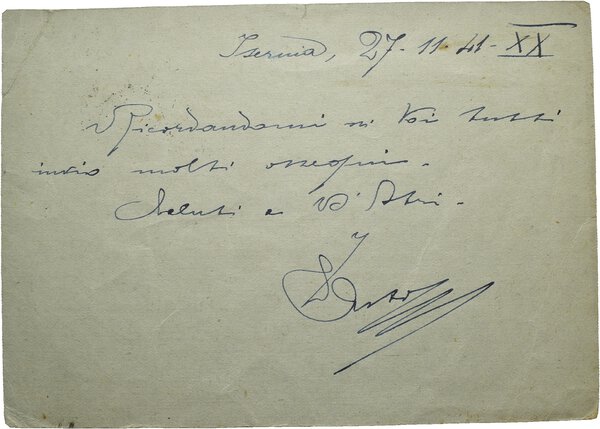 Isernia, 27-11-41-XX
Ricordandomi di Voi tutti
invio molti ossequi.
Saluti a D'Atri.